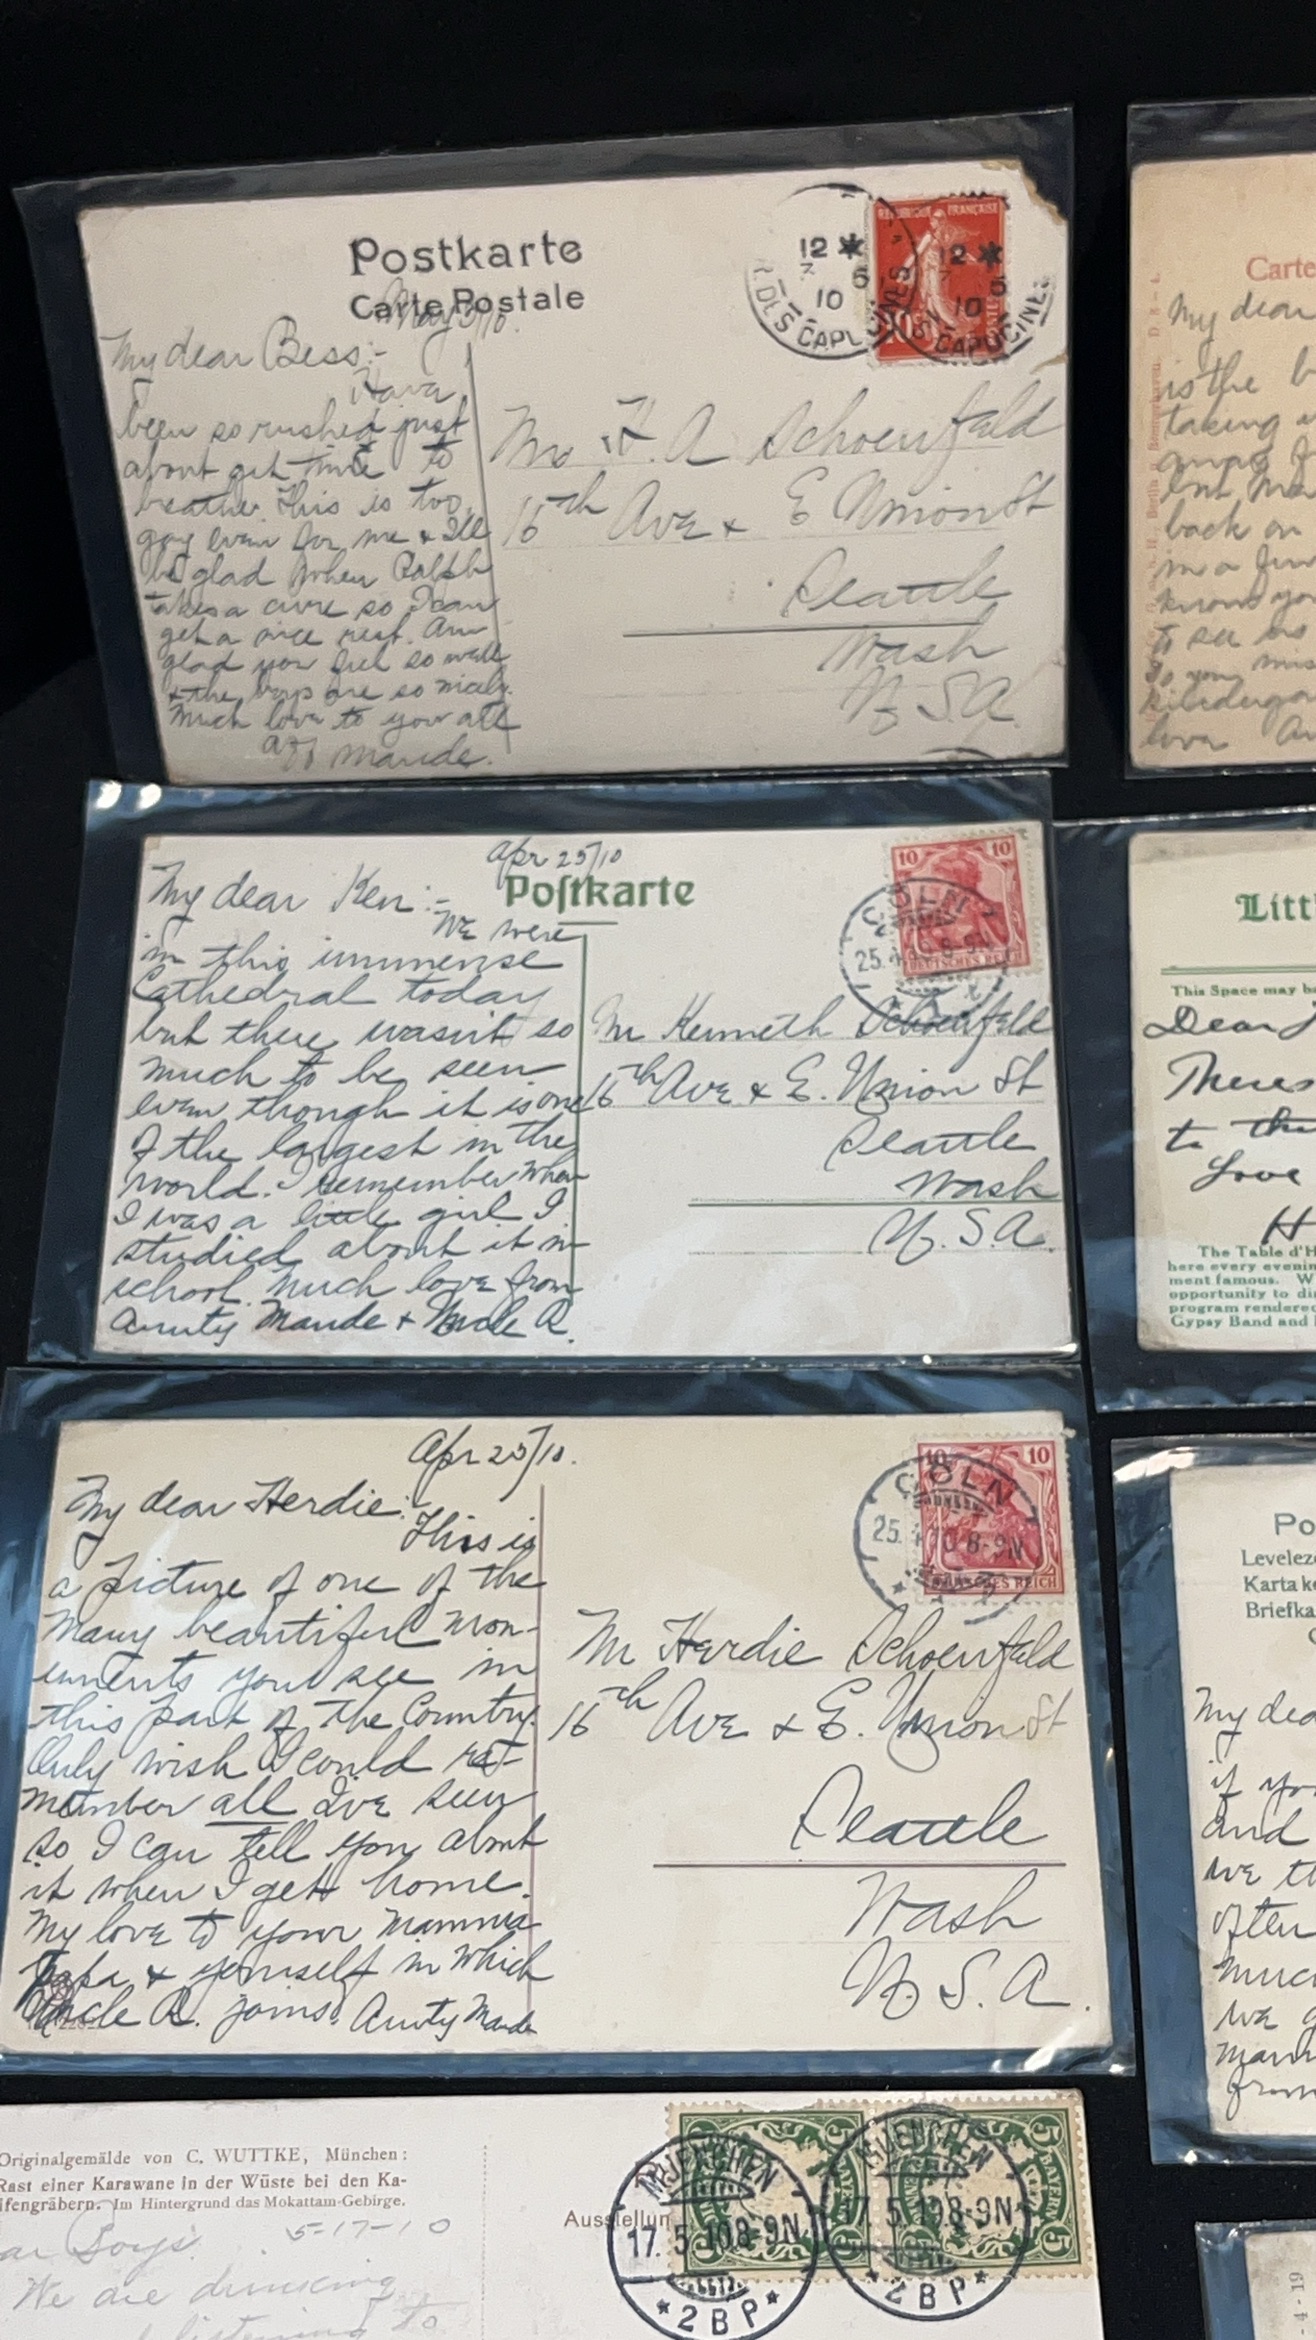 Postkarte
Carte Postale
May 5/10.
My dear Bess:-
Have
been so rushed just
about get time to
breathe. This is too
gay even for me & I'll
be glad when Ralph
takes a cure so I can
get a nice rest. Am
glad you feel so well
& the boys are so nicely.
Much love to you all
Aff Maude.
12 *
7 5
10
DES CAPUCINES
REPUBLIQUE FRANÇAISE
12 *
7 5
10
CAPUCINES
10
Mr H. A Schoenfeld
16th Ave & E Union St
Seattle
Wash
U.S.A.
Apr 25/10
Postkarte
My dear Ken:-
We were
in this immense
Cathedral today
but there wasn't so
much to be seen
even though it is one
of the largest in the
world. I remember when
I was a little girl I
studied about it in
school. Much love from
Aunty Maude & Uncle R.
10 10
CÖLN
25.4.10.8-9N
DEUTSCHES REICH
Mr Kenneth Schoenfeld
16th Ave & E. Union St
Seattle
Wash
U.S.A.
Apr 25/10.
My dear Herdie:-
This is
a picture of one of the
many beautiful mon-
uments you see in
this part of the Country.
Only wish I could re-
member all I've seen
so I can tell you about
it when I get home.
My love to your Mamma
Papa & yourself in which
Uncle R. joins. Aunty Maude
10 10
CÖLN
25.4.10 8-9N
DEUTSCHES REICH
Mr Herdie Schoenfeld
16th Ave & E. Union St
Seattle
Wash
U.S.A.
Originalgemälde von C. WUTTKE, München:
Rast einer Karawane in der Wüste bei den Ka-
lifengräbern. Im Hintergrund das Mokattam-Gebirge.
5-17-10
Boys
We are drinking
listening to
Ausstellun
5 5
BAYERN
MUENCHEN
17. 5. 10 8-9N
* 2 B P *
MUENCHEN
17. 5. 10 8-9N
* 2 B P *
Carte
My dear
is the b
taking
back on
in a few
know you
to see
To you miss
kindergar
love
D. 8 - 4.
Litt
This Space may b
Dear
Theres
to the
Love
H
The Table d'H
here every evenin
ment famous. W
opportunity to di
program rendere
Gypsy Band and
Po
Leveleze
Karta k
Briefka
My dea
if yo
and
we th
often
much
we
from
- 4 - 19